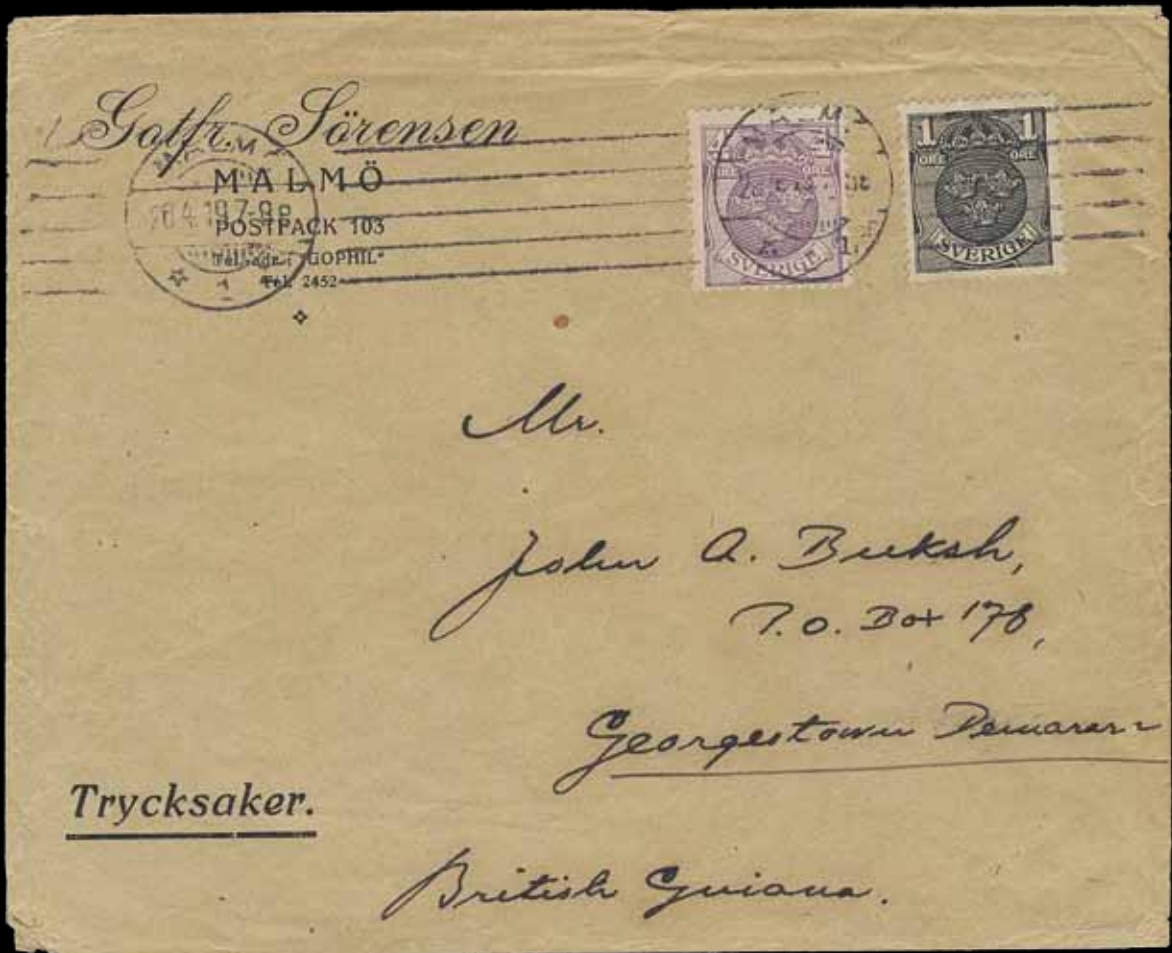 Gotfr. Sörensen
MALMÖ
POSTFACK 103
Tel.-adr.: "GOPHIL"
Tel. 2452
28.4.19.7-8
1
4
ÖRE
SVERIGE
1 1
ÖRE ÖRE
SVERIGE
Mr.
John A. Buksh,
P.O. Box 178,
Georgestown Demarara
Trycksaker.
British Guiana.